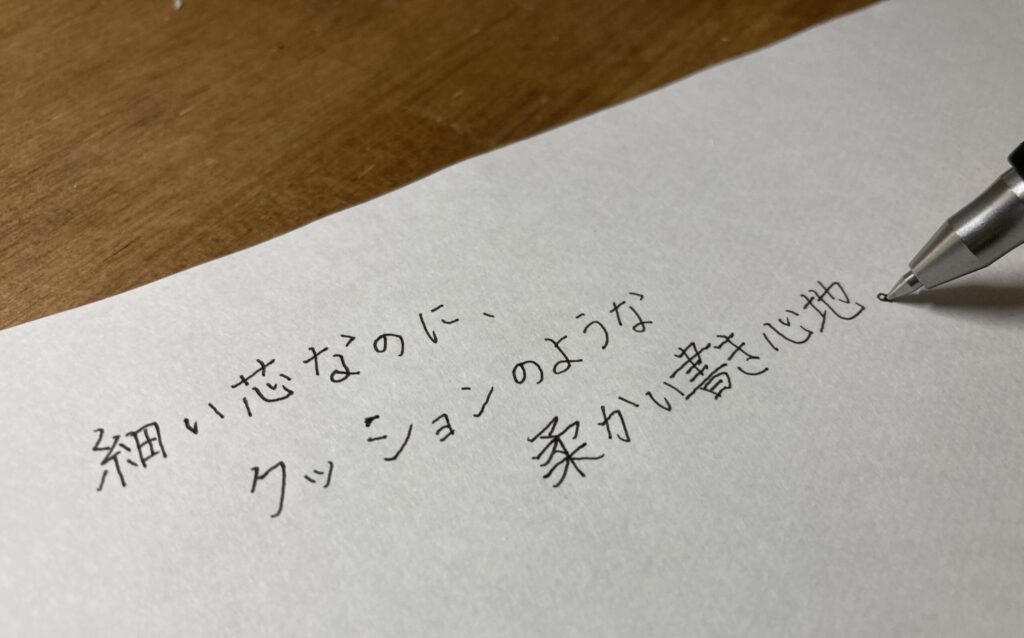 細い芯なのに、
クッションのような
柔かい書き心地。